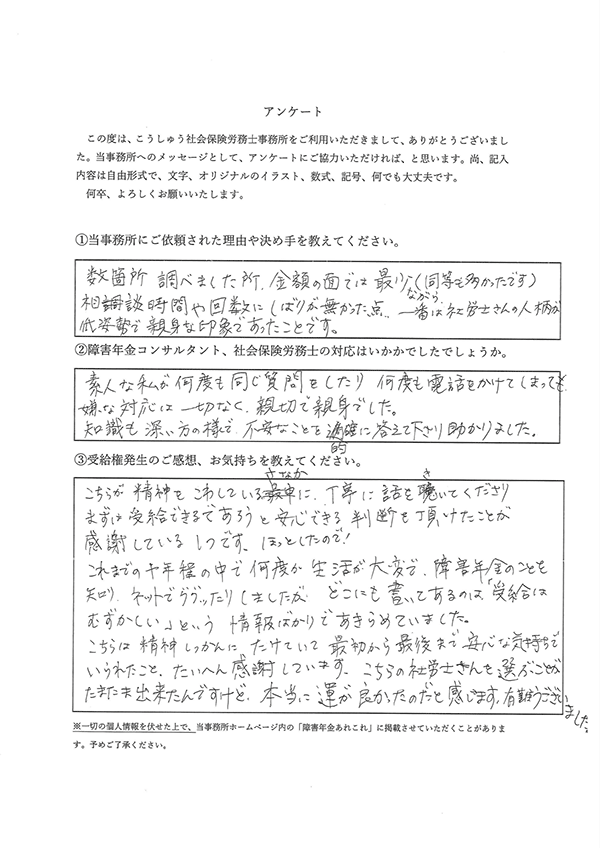 アンケート
この度は、こうしゅう社会保険労務士事務所をご利用いただきまして、ありがとうございまし
た。当事務所へのメッセージとして、アンケートにご協力いただければ、と思います。尚、記入
内容は自由形式で、文字、オリジナルのイラスト、数式、記号、何でも大丈夫です。
何卒、よろしくお願いいたします。
①当事務所にご依頼された理由や決め手を教えてください。
数箇所 調べました所、金額の面では 最少(同等も多かったです)
ながら、
相談時間や回数にしばりが無かった点、一番は社労士さんの人柄が
低姿勢で親身な印象であったことです。
②障害年金コンサルタント、社会保険労務士の対応はいかかでしたでしょうか。
素人な私が何度も同じ質問をしたり 何度も電話をかけてしまっても
嫌な対応は一切なく、親切で親身でした。
知識も深い方の様で、不安なことを 適確に答えて下さり助かりました。
的
③受給権発生のご感想、お気持ちを教えてください。
さなか き
こちらが 精神をこわしている最中に、丁寧に話を聴いてくださり
まずは受給できるであろうと安心できる判断を頂けたことが
感謝している1つです、ほっとしたので!
これまでの十年程の中で何度か生活が大変で、障害年金のことも
知り、ネットでググッたりしましたが どこにも書いてあるのは「受給は
むずかしい」という 情報ばかりであきらめていました。
こちらは精神しっかんに たけていて 最初から最後まで安心な気持ちで
いられたこと、たいへん感謝しています。こちらの社労士さんを選ぶことが
たまたま出来たんですけど、本当に運が良かったのだと感じます。有難うござい
ました。
※一切の個人情報を伏せた上で、当事務所ホームページ内の「障害年金あれこれ」に掲載させていただくことがありま
す。予めご了承ください。